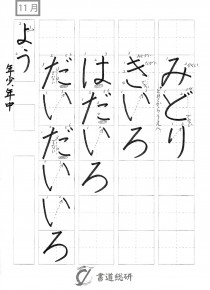 11月
みどり
きいろ
はだいろ
だいだいいろ
よう
年少年中
書道総研